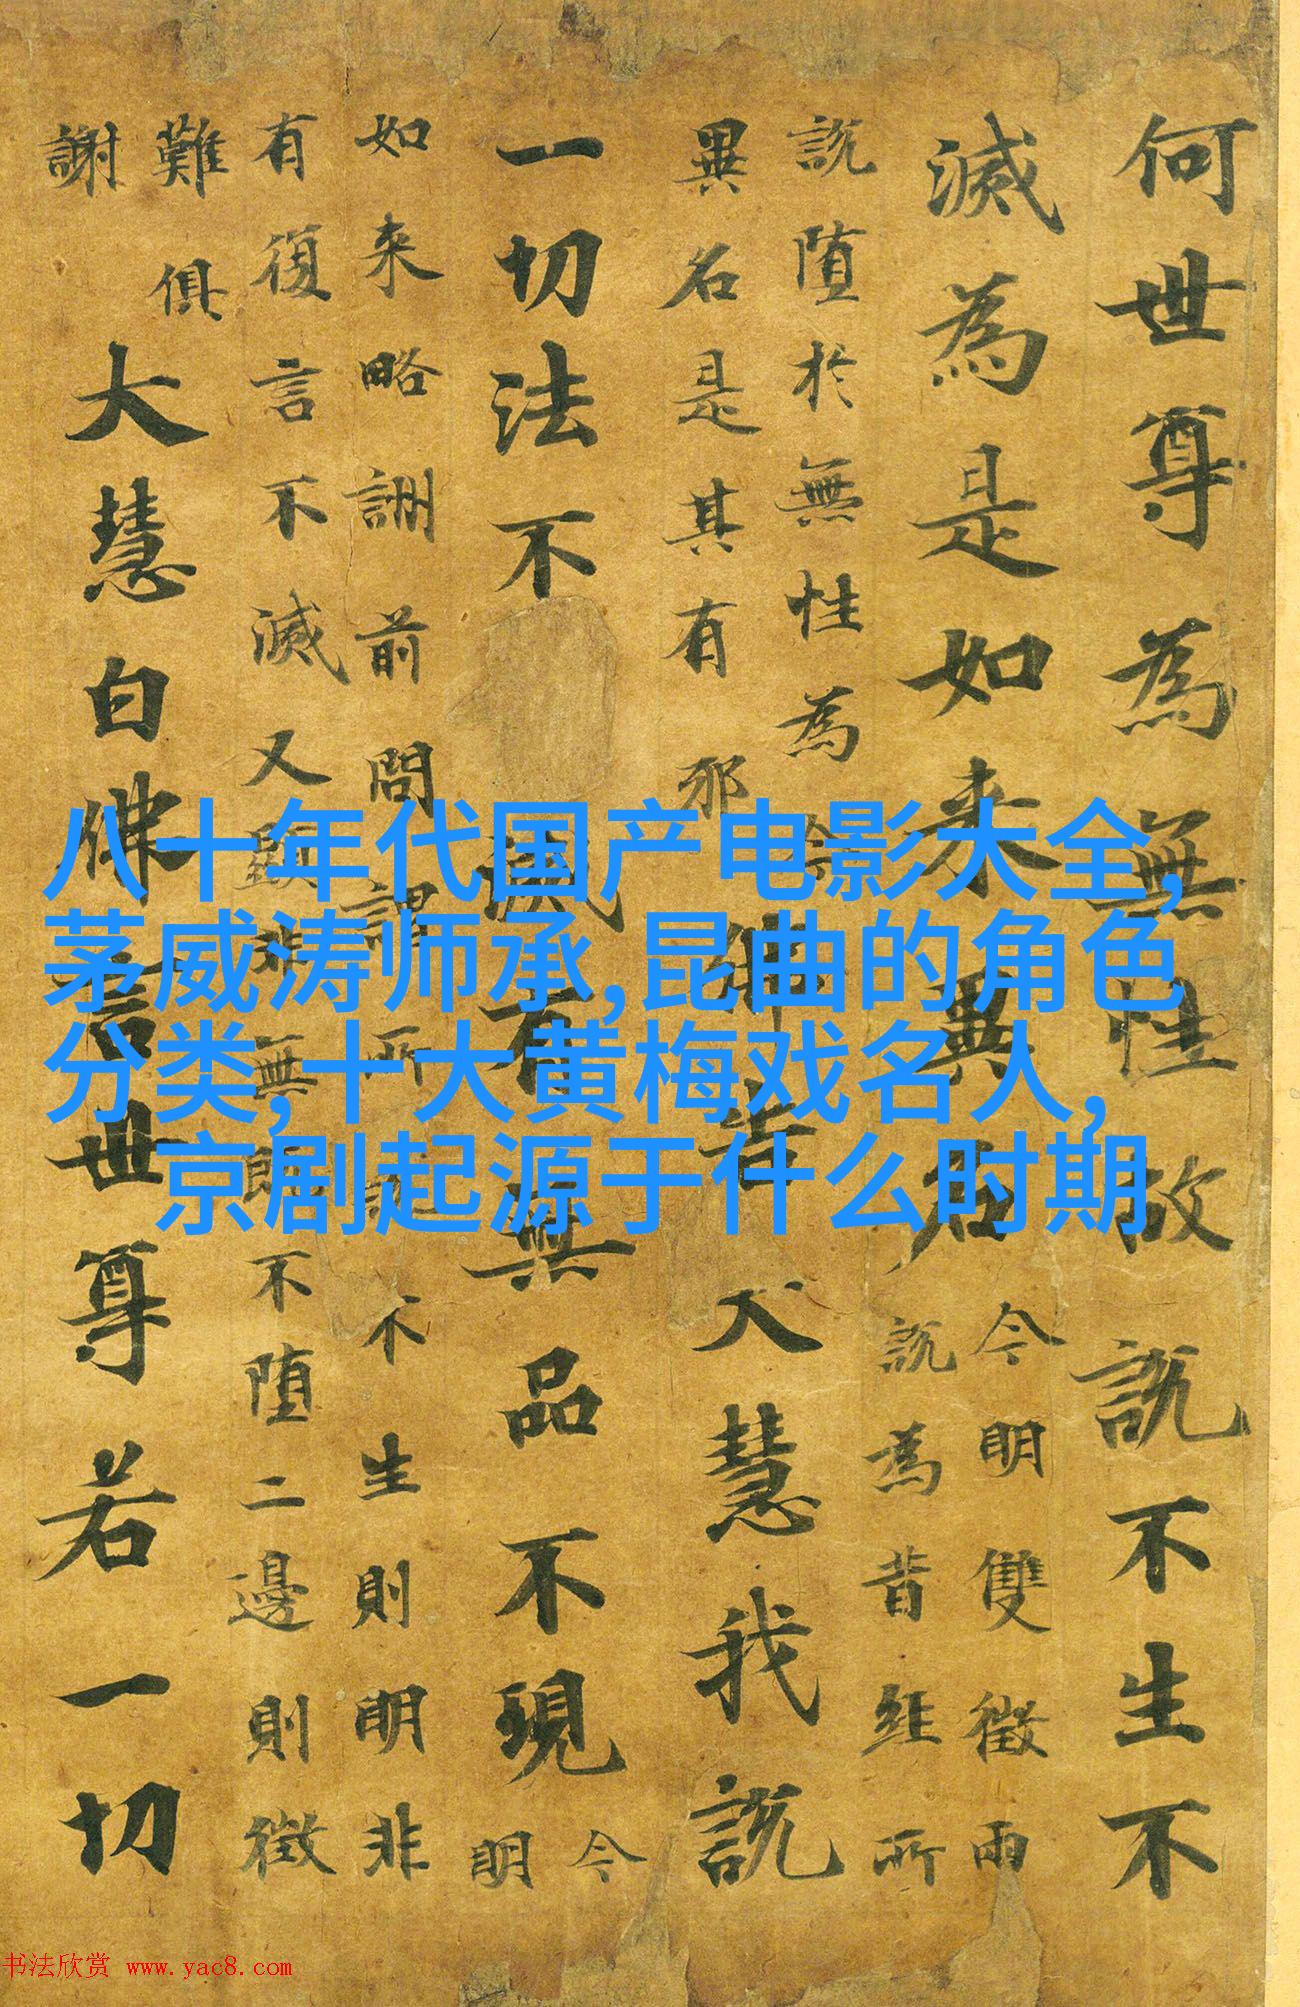 何世尊為無性故說不生不
滅為是如来異名
今明雙徵兩
說為昔經所
說堕於無性為
異名是其有邪
佛告大慧我說
一切法不
滅有無品不現
今
明
如来略詶前問謂所不生則明非
有復言不滅又顯非無即不堕二邊則徵
難俱
謝
大慧白佛言世尊若一切
八十年代国产电影大全,
茅威涛师承,昆曲的角色
分类,十大黄梅戏名人,
京剧起源于什么时期
书法欣赏 www.yac8.com